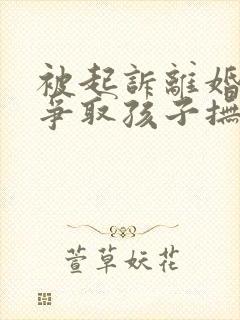 被起訴離婚
爭取孩子撫
萱草妖花